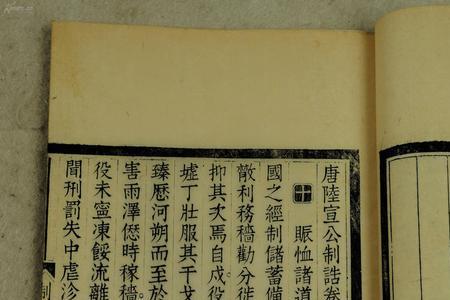 唐陸宣公制誥卷
賑恤諸道
國之經制儲蓄備
散利務穡勸分徙
抑其大焉自戎役
墟丁壯服其干戈
臻歷河朔而至於
害雨澤愆時稼穡
役未寧凍餒流離
聞刑罰失中虐沴
制